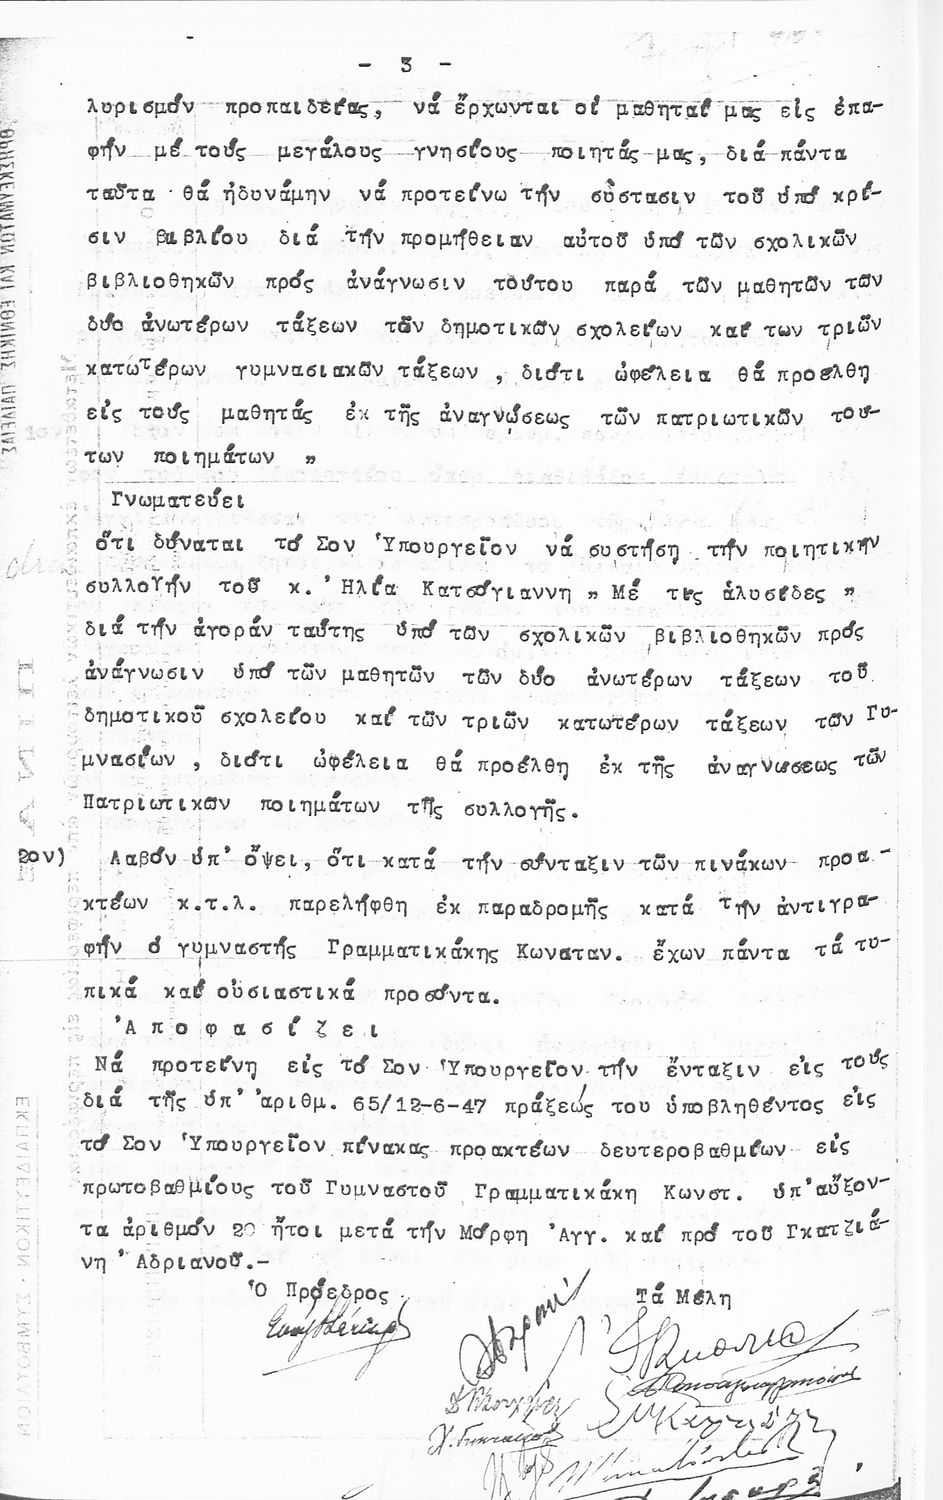 - 3 -
λυρισμόν προπαιδείας, νά ἔρχωνται οἱ μαθηταί μας εἰς ἐπα-
φήν μέ τούς μεγάλους γνησίους ποιητάς μας, διά πάντα
ταῦτα θά ἠδυνάμην νά προτείνω τήν σύστασιν τοῦ ὑπό κρί-
σιν βιβλίου διά τήν προμήθειαν αὐτοῦ ὑπό τῶν σχολικῶν
βιβλιοθηκῶν πρός ἀνάγνωσιν τούτου παρά τῶν μαθητῶν τῶν
δύο ἀνωτέρων τάξεων τῶν δημοτικῶν σχολείων καί των τριῶν
κατωτέρων γυμνασιακῶν τάξεων , διότι ὠφέλεια θά προέλθη
εἰς τούς μαθητάς ἐκ τῆς ἀναγνώσεως τῶν πατριωτικῶν τού-
των ποιημάτων "
Γνωματεύει
ὅτι δύναται τό Σον Ὑπουργεῖον νά συστήση τήν ποιητικήν
συλλογήν τοῦ κ. Ἠλία Κατσόγιαννη " Μέ τις ἁλυσίδες "
διά τήν ἀγοράν ταύτης ὑπό τῶν σχολικῶν βιβλιοθηκῶν πρός
ἀνάγνωσιν ὑπό τῶν μαθητῶν τῶν δύο ἀνωτέρων τάξεων τοῦ
δημοτικοῦ σχολείου καί τῶν τριῶν κατωτέρων τάξεων τῶν Γυ-
μνασίων , διότι ὠφέλεια θά προέλθη ἐκ τῆς ἀναγνώσεως τῶν
Πατριωτικῶν ποιημάτων τῆς συλλογῆς.
2ον) Λαβόν ὑπ' ὄψει, ὅτι κατά τήν σύνταξιν τῶν πινάκων προα-
κτέων κ.τ.λ. παρελήφθη ἐκ παραδρομῆς κατά τήν ἀντιγρα-
φήν ὁ γυμναστής Γραμματικάκης Κωνσταν. ἔχων πάντα τά τυ-
πικά καί οὐσιαστικά προσόντα.
Ἀ π ο φ α σ ί ζ ε ι
Νά προτείνη εἰς τό Σον Ὑπουργεῖον τήν ἔνταξιν εἰς τούς
διά τῆς ὑπ' ἀριθμ. 65/12-6-47 πράξεώς του ὑποβληθέντος εἰς
τό Σον Ὑπουργεῖον πίνακας προακτέων δευτεροβαθμίων εἰς
πρωτοβαθμίους τοῦ Γυμναστοῦ Γραμματικάκη Κωνστ. ὑπ'αὔξον-
τα ἀριθμόν 20 ἤτοι μετά τήν Μόρφη Ἀγγ. καί πρό τοῦ Γκατζιά-
νη Ἀδριανοῦ.-
Ὁ Πρόεδρος Τά Μέλη